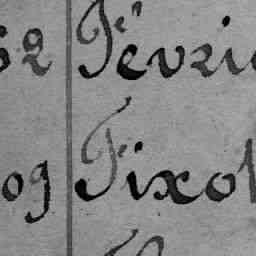 52 Févri
09 Fixol